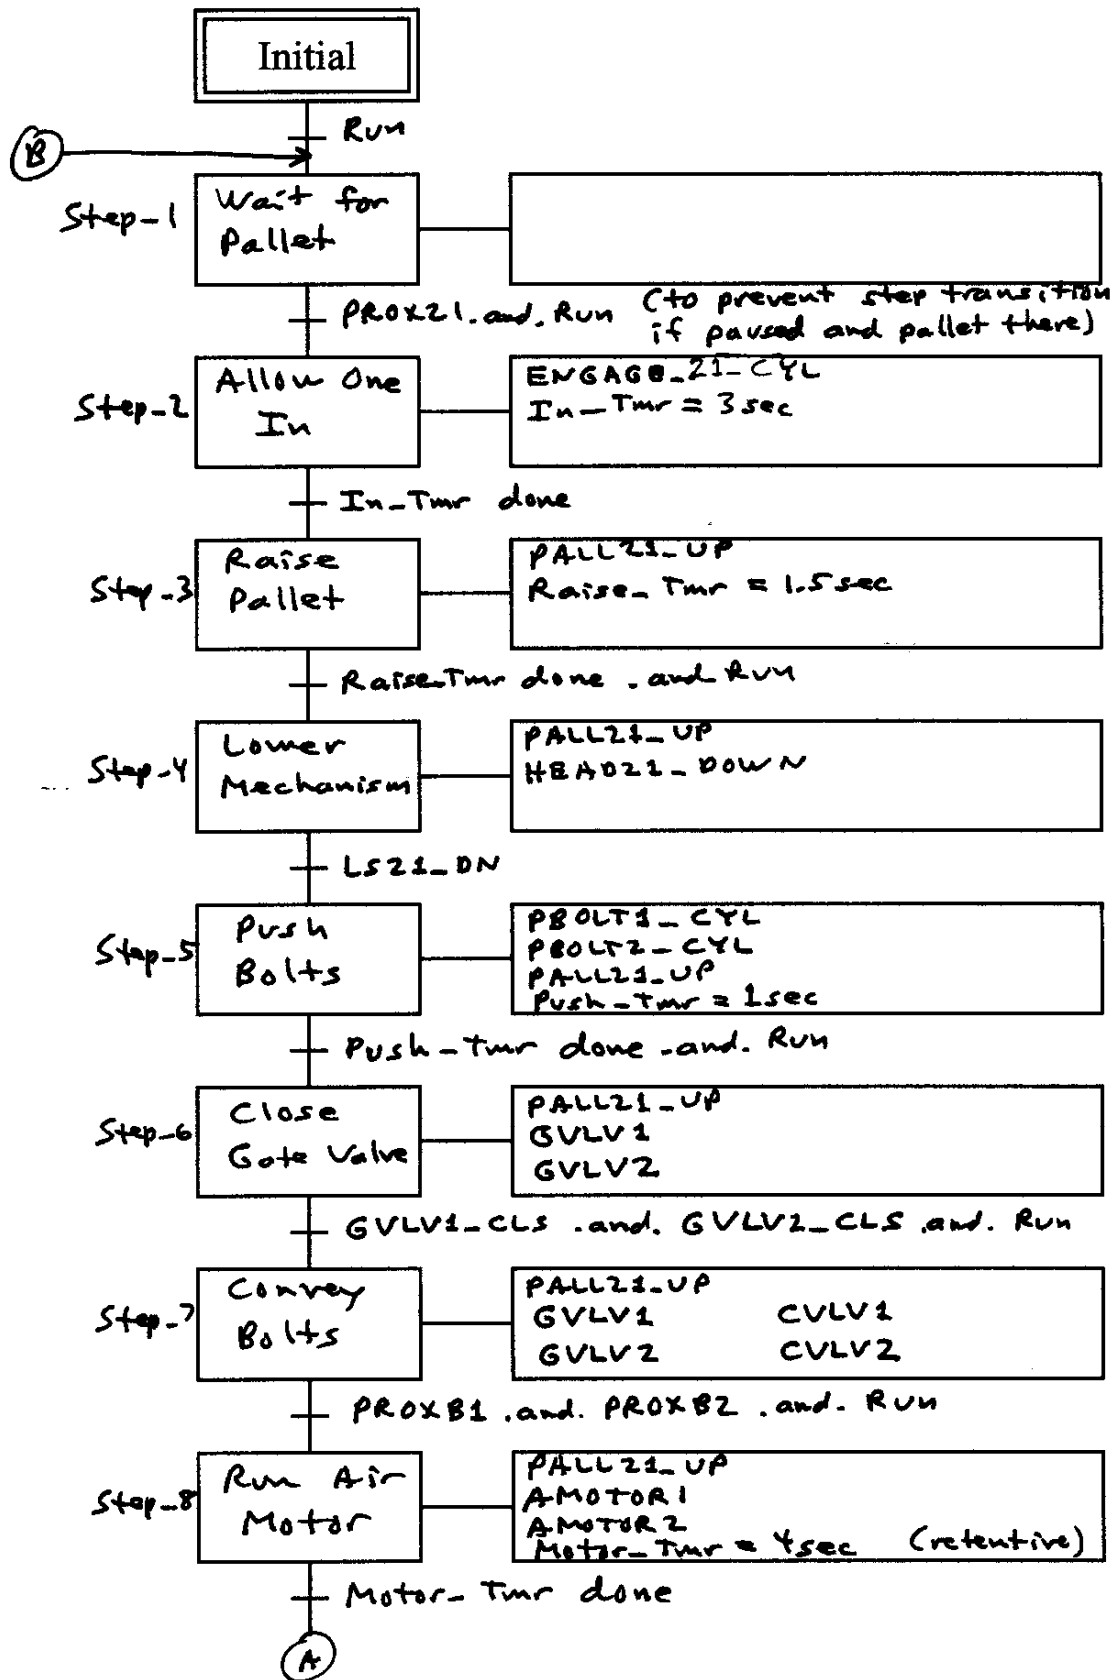 Initial
Run
B
Step-1
Wait for
Pallet
PROX21 .and. Run (to prevent step transition
if paused and pallet there)
Step-2
Allow One
In
ENGAGE_21_CYL
In_Tmr = 3 sec
In_Tmr done
Step-3
Raise
Pallet
PALL21_UP
Raise_Tmr = 1.5 sec
Raise_Tmr done .and. Run
Step-4
Lower
Mechanism
PALL21_UP
HEAD21_DOWN
LS21_DN
Step-5
Push
Bolts
PBOLT1_CYL
PBOLT2_CYL
PALL21_UP
Push_Tmr = 1 sec
Push_Tmr done .and. Run
Step-6
Close
Gate Valve
PALL21_UP
GVLV1
GVLV2
GVLV1_CLS .and. GVLV2_CLS .and. Run
Step-7
Convey
Bolts
PALL21_UP
GVLV1 CVLV1
GVLV2 CVLV2
PROXB1 .and. PROXB2 .and. Run
Step-8
Run Air
Motor
PALL21_UP
AMOTOR1
AMOTOR2
Motor_Tmr = 4 sec (retentive)
Motor_Tmr done
A